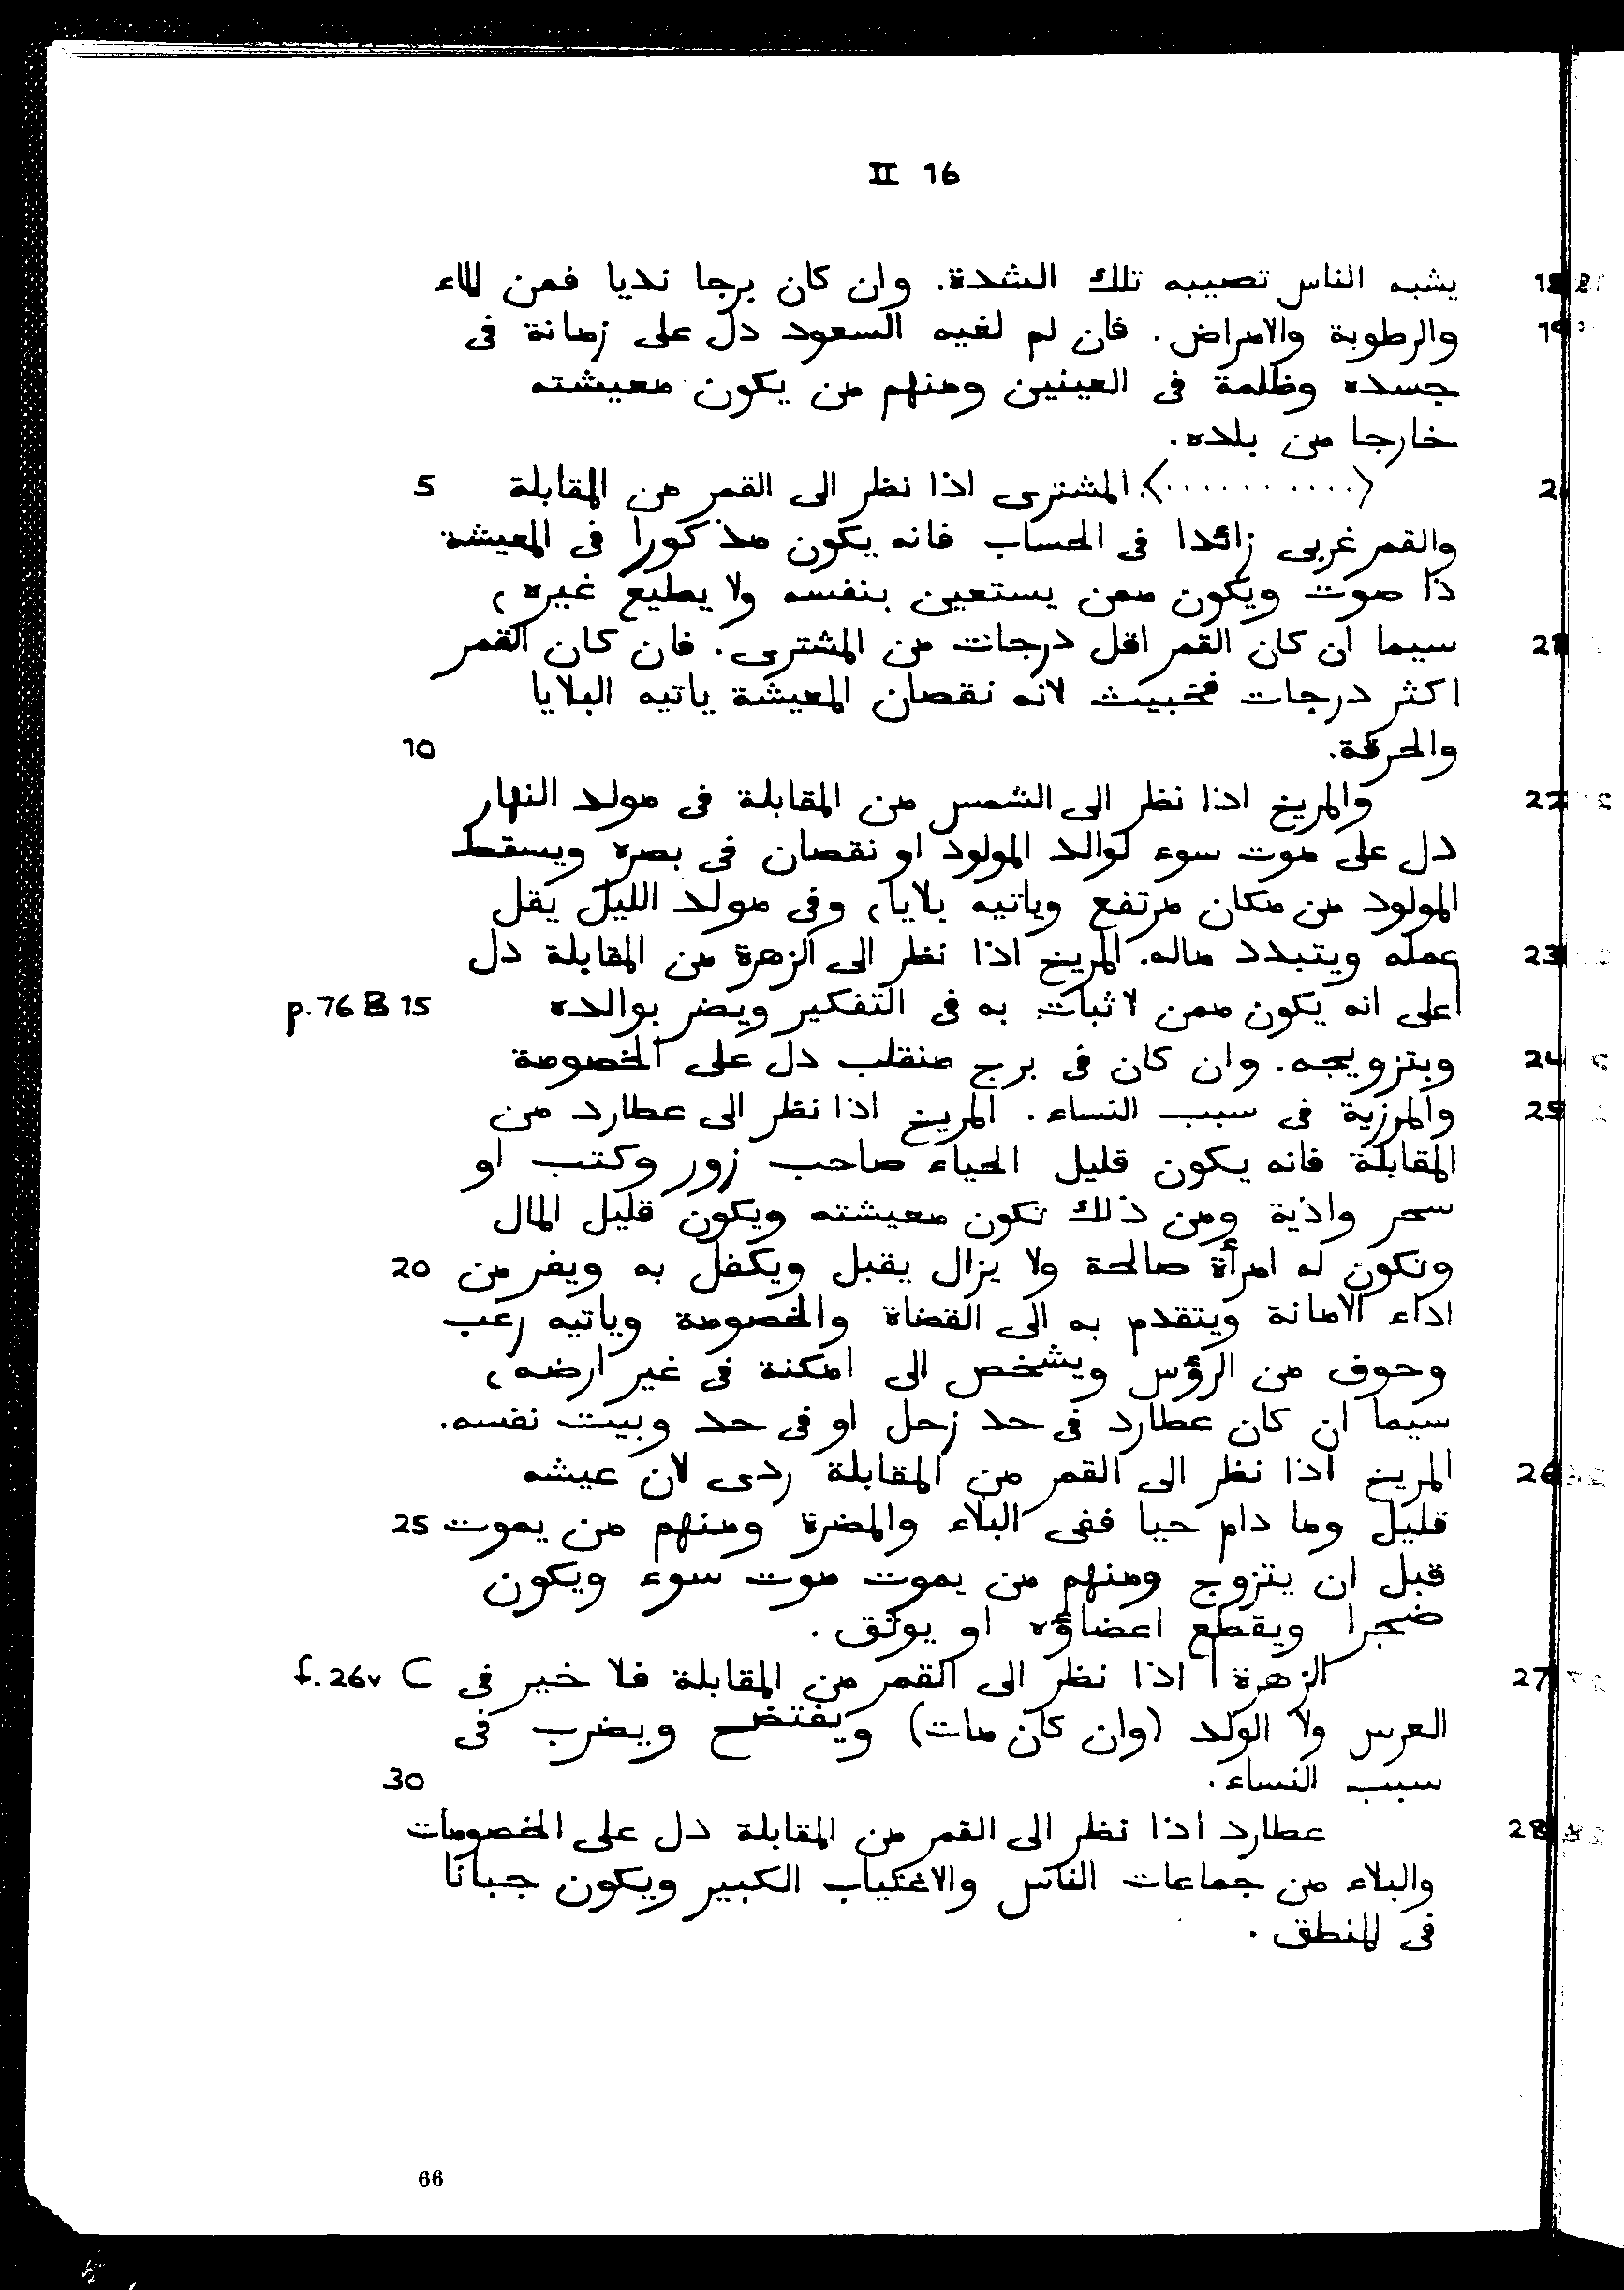 II 16
18 يشبه الناس تصيبه تلك الشدة. وان كان برجا نديا فمن الماء
19 والرطوبة والامراض. فان لم لغيه السعود دل على زمانة فى
جسده وظلمة فى العينين ومنهم من يكون معيشته
خارجا من بلده.
<..........> المشترى اذا نظر الى القمر من المقابلة 5
والقمر غربى زائدا فى الحساب فانه يكون مذكورا فى المعيشة
ذا صوت ويكون ممن يستعين بنفسه ولا يطيع غيره،
21 سيما ان كان القمر اقل درجات من المشترى. فان كان القمر
اكثر درجات فخبيث لانه نقصان المعيشة ياتيه البلايا
والحركة. 10
22 والمريخ اذا نظر الى الشمس من المقابلة فى مولد النهار
دل على موت سوء لوالد المولود او نقصان فى بصره ويسقط
المولود من مكان مرتفع وياتيه بلايا، وفى مولد الليل يقل
23 عمله ويتبدد ماله. المريخ اذا نظر الى الزهرة من المقابلة دل
اعلى انه يكون ممن لا ثبات به فى التفكير ويضر بوالده p. 76 B 15
24 وبتزويجه. وان كان فى برج منقلب دل على الخصومة
25 والمرزية فى سبب النساء. المريخ اذا نظر الى عطارد من
المقابلة فانه يكون قليل الحياء صاحب زور وكتب او
سحر واذية ومن ذلك تكون معيشته ويكون قليل المال
وتكون له امرأة صالحة ولا يزال يقبل ويكفل به ويفر من 20
اداء الامانة ويتقدم به الى القضاة والخصومة وياتيه رعب
وحوف من الرؤس ويشخص الى امكنة فى غير ارضه،
سيما ان كان عطارد فى حد زحل او فى حد وبيت نفسه.
26 المريخ اذا نظر الى القمر من المقابلة ردى لان عيشه
قليل وما دام حيا ففى البلاء والمضرة ومنهم من يموت 25
قبل ان يتزوج ومنهم من يموت موت سوء ويكون
ضجرا ويقطع اعضاؤه او يوثق.
27 الزهرة ا اذا نظر الى القمر من المقابلة فلا خير فى f. 26v C
العرس ولا الولد (وان كان مات) ويفتضح ويضرب فى
سبب النساء. 30
28 عطارد اذا نظر الى القمر من المقابلة دل على الخصومات
والبلاء من جماعات الناس والاغتياب الكبير ويكون جبانا
فى المنطق.
66